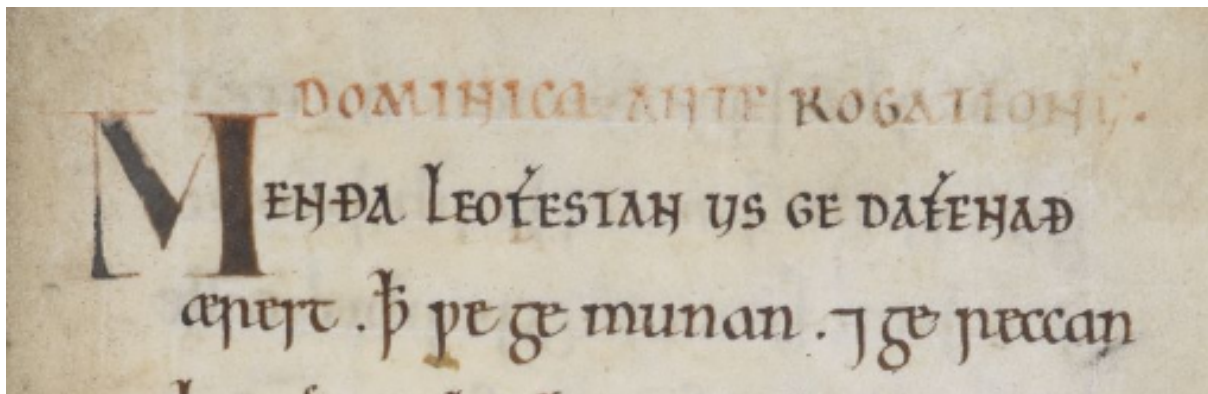 DOMINICA ANTE ROGATIONU͛.
MENÐA LEOFESTAN US GE DAFENAÐ
ærest . ꝥ ƿe ge munan . ⁊ ge reccan